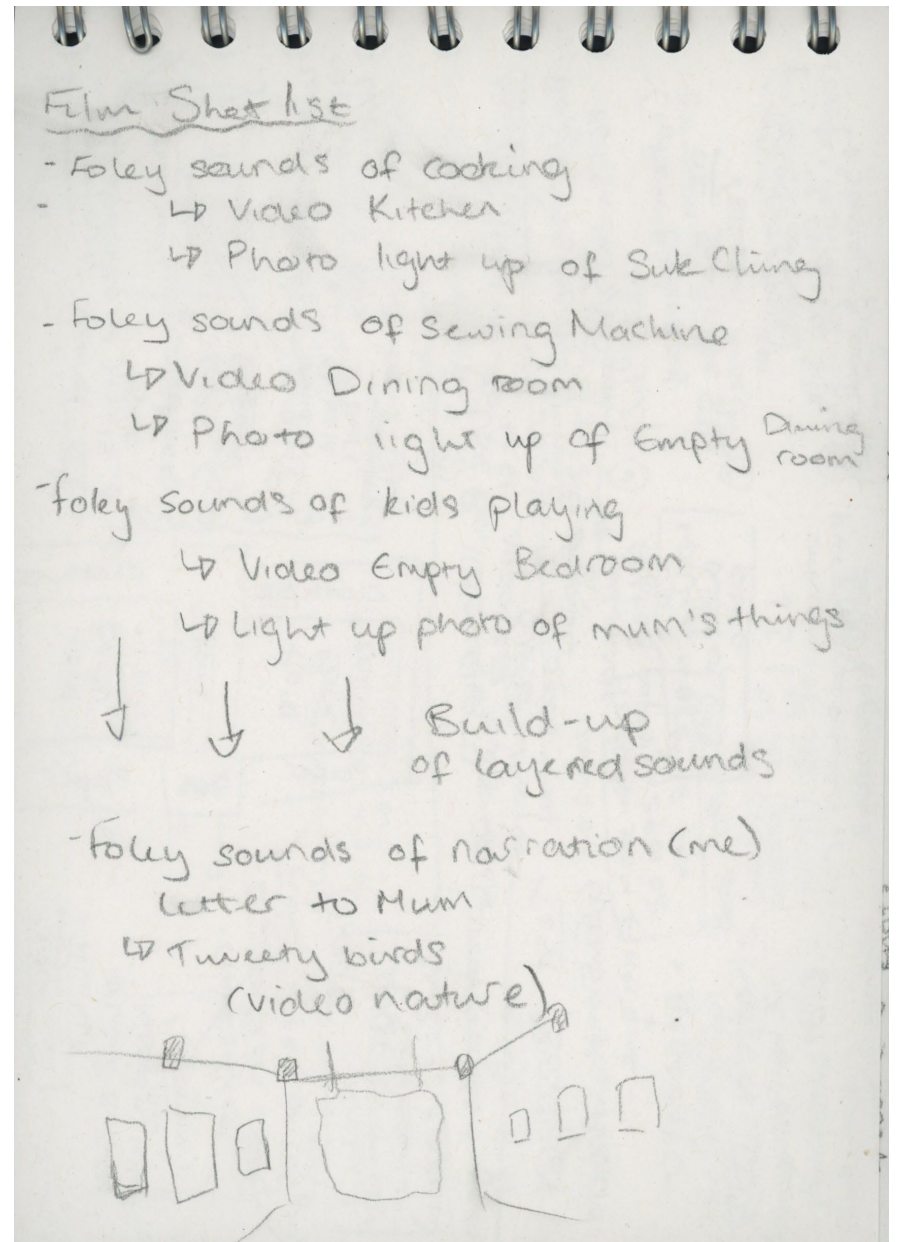 Film Shot list
- Foley sounds of cooking
- ↳ Video Kitchen
↳ Photo light up of Suk Ching
- Foley sounds of Sewing Machine
↳ Video Dining room
↳ Photo light up of Empty Dining room
- foley sounds of kids playing
↳ Video Empty Bedroom
↳ Light up photo of mum's things
Build-up
of layered sounds
- foley sounds of narration (me)
letter to Mum
↳ Tweety birds
(video nature)